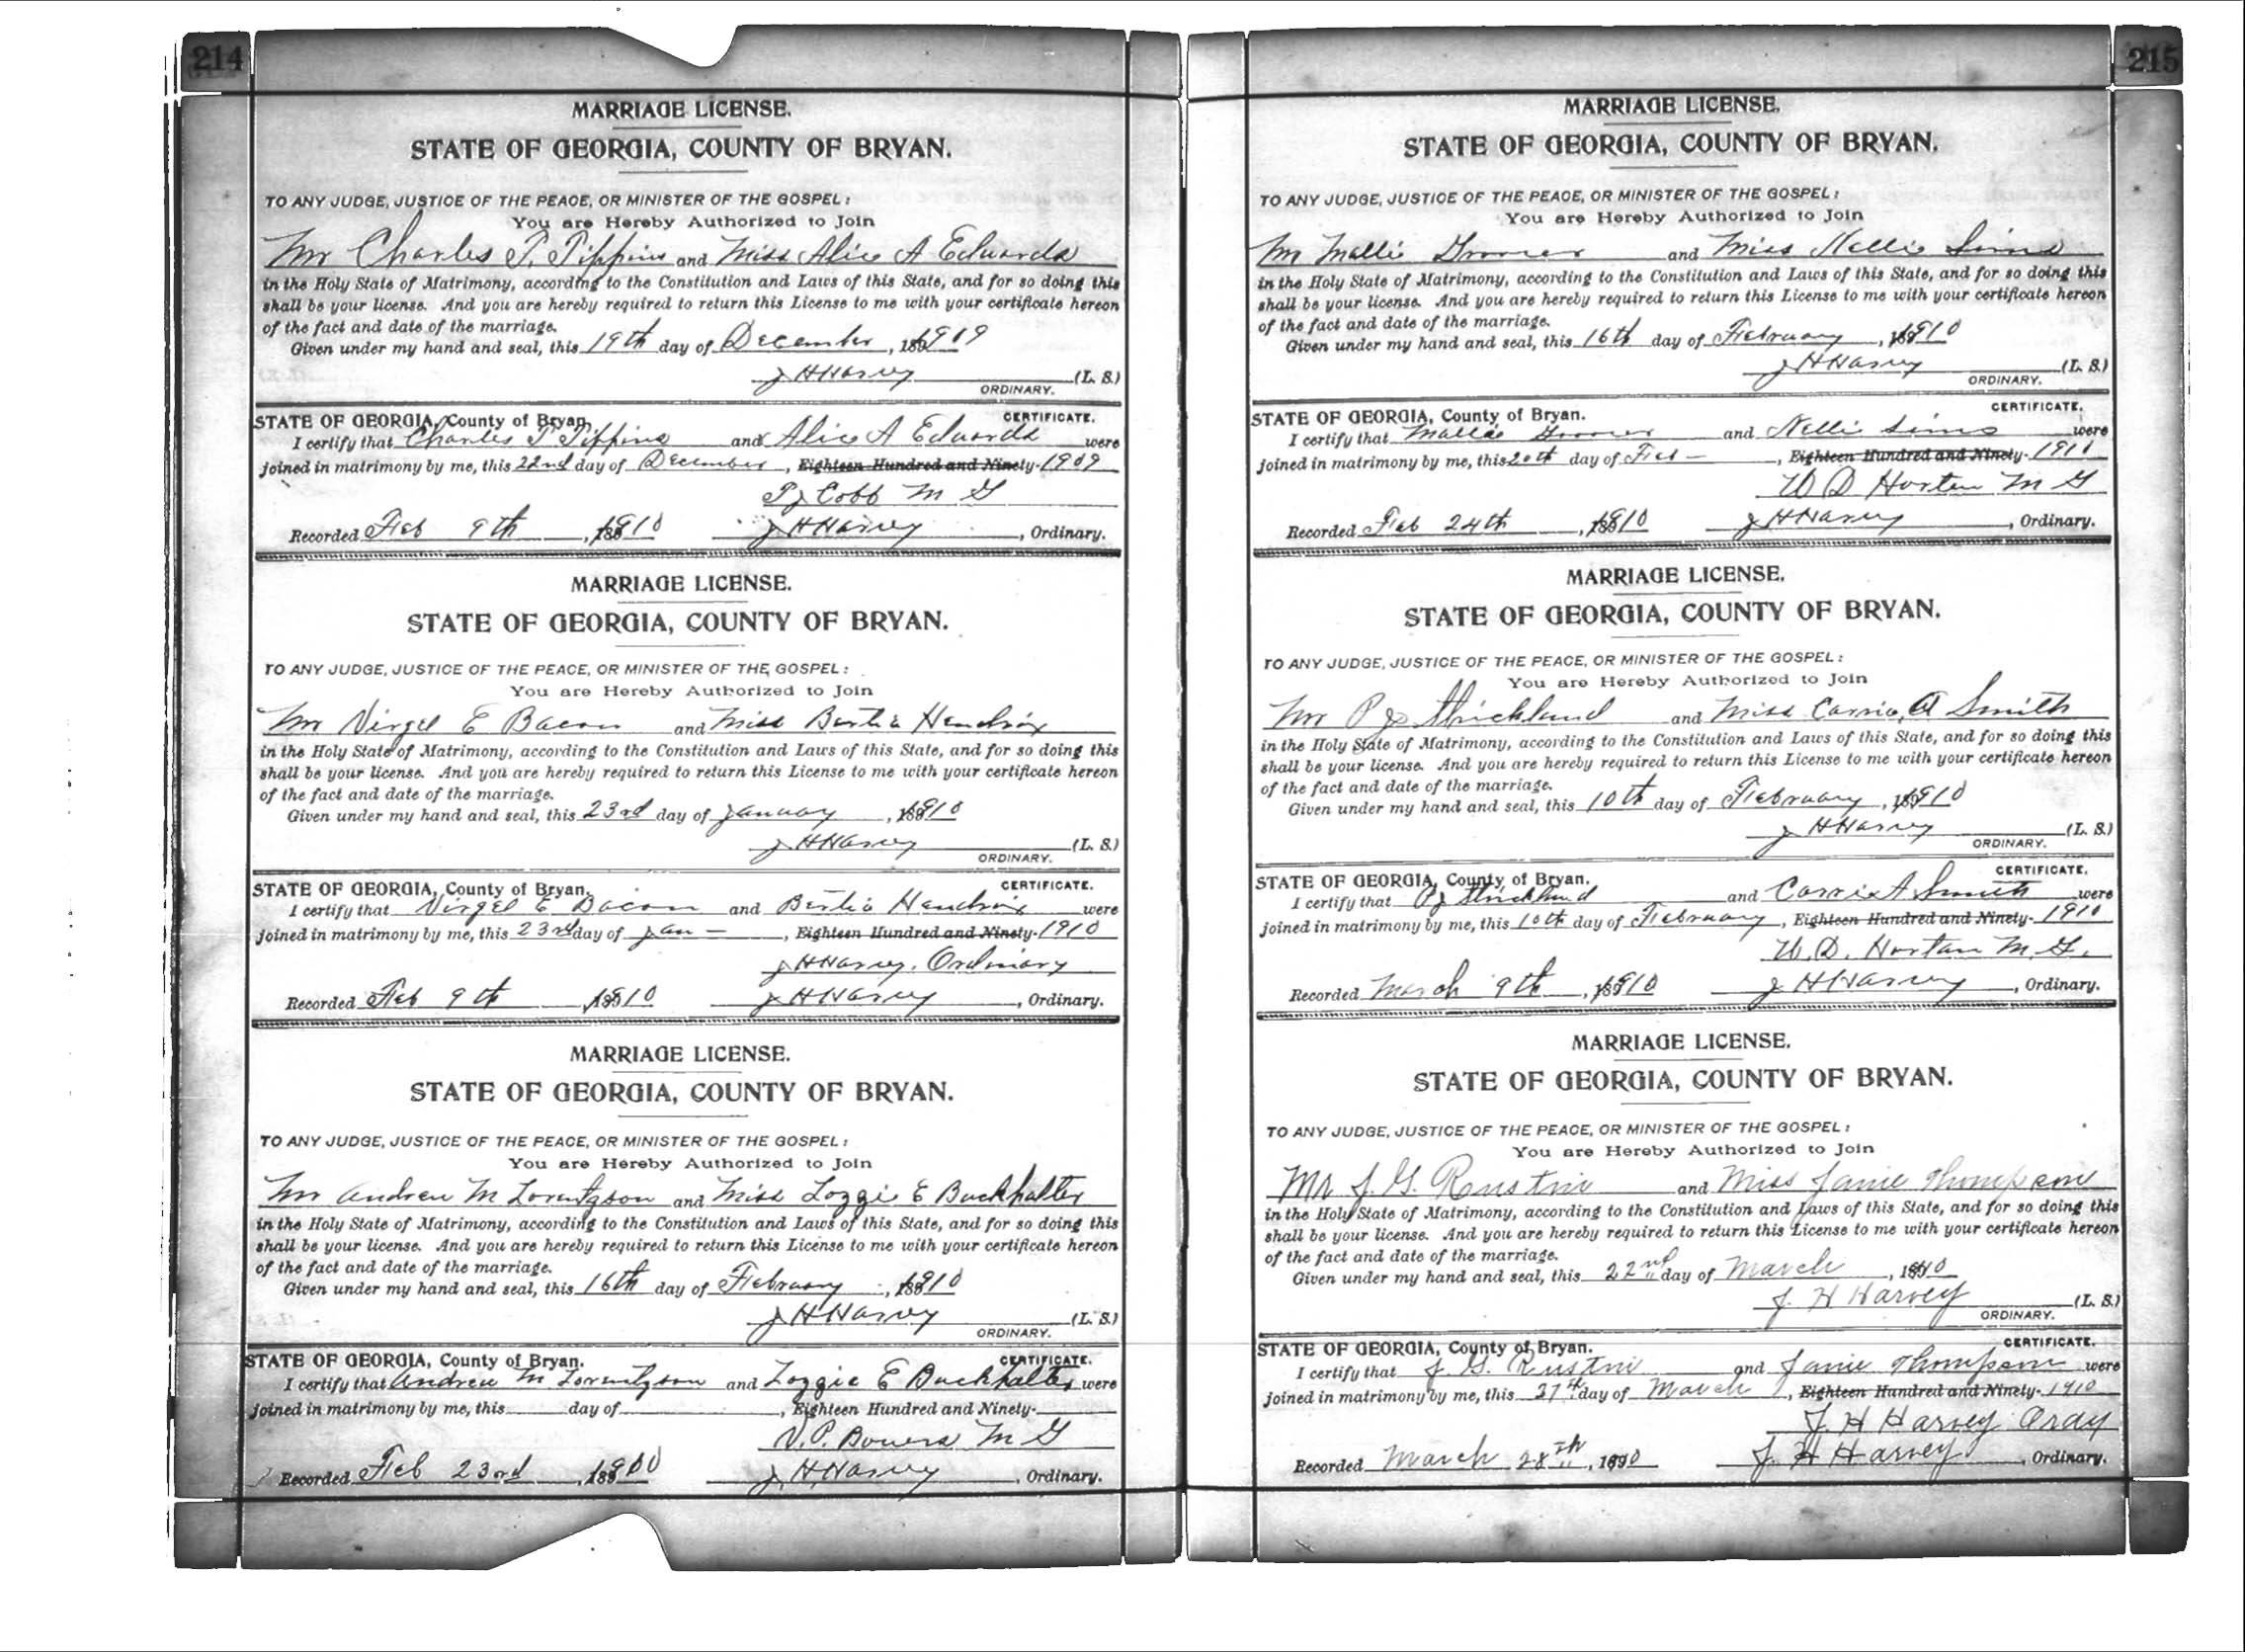 214
MARRIAGE LICENSE.
STATE OF GEORGIA, COUNTY OF BRYAN.
TO ANY JUDGE, JUSTICE OF THE PEACE, OR MINISTER OF THE GOSPEL:
You are Hereby Authorized to Join
Mr Charles T. Tippins and Miss Alice A Edwards
in the Holy State of Matrimony, according to the Constitution and Laws of this State, and for so doing this
shall be your license. And you are hereby required to return this License to me with your certificate hereon
of the fact and date of the marriage.
Given under my hand and seal, this 19th day of December, 1909
J H Harvey (L. S.)
ORDINARY.
STATE OF GEORGIA, County of Bryan. CERTIFICATE.
I certify that Charles T Tippins and Alice A Edwards were
joined in matrimony by me, this 22nd day of December, Eighteen Hundred and Ninety- 1909
T J Cobb M G
Recorded Feb 9th, 1910 J H Harvey, Ordinary.
MARRIAGE LICENSE.
STATE OF GEORGIA, COUNTY OF BRYAN.
TO ANY JUDGE, JUSTICE OF THE PEACE, OR MINISTER OF THE GOSPEL:
You are Hereby Authorized to Join
Mr Virgel E Bacon and Miss Bertie Hendrix
in the Holy State of Matrimony, according to the Constitution and Laws of this State, and for so doing this
shall be your license. And you are hereby required to return this License to me with your certificate hereon
of the fact and date of the marriage.
Given under my hand and seal, this 23rd day of January, 1910
J H Harvey (L. S.)
ORDINARY.
STATE OF GEORGIA, County of Bryan. CERTIFICATE.
I certify that Virgel E Bacon and Bertie Hendrix were
joined in matrimony by me, this 23rd day of Jan —, Eighteen Hundred and Ninety- 1910
J H Harvey, Ordinary
Recorded Feb 9th, 1910 J H Harvey, Ordinary.
MARRIAGE LICENSE.
STATE OF GEORGIA, COUNTY OF BRYAN.
TO ANY JUDGE, JUSTICE OF THE PEACE, OR MINISTER OF THE GOSPEL:
You are Hereby Authorized to Join
Mr Andrew M Lorentzson and Miss Lozzie E Buckhalter
in the Holy State of Matrimony, according to the Constitution and Laws of this State, and for so doing this
shall be your license. And you are hereby required to return this License to me with your certificate hereon
of the fact and date of the marriage.
Given under my hand and seal, this 16th day of February, 1910
J H Harvey (L. S.)
ORDINARY.
STATE OF GEORGIA, County of Bryan. CERTIFICATE.
I certify that Andrew M Lorentzson and Lozzie E Buckhalter were
joined in matrimony by me, this day of , Eighteen Hundred and Ninety-
V. P. Bowers M G
Recorded Feb 23rd, 1900 J. H. Harvey, Ordinary.
215
MARRIAGE LICENSE.
STATE OF GEORGIA, COUNTY OF BRYAN.
TO ANY JUDGE, JUSTICE OF THE PEACE, OR MINISTER OF THE GOSPEL:
You are Hereby Authorized to Join
Mr Mallie and Miss Nellie Sims
in the Holy State of Matrimony, according to the Constitution and Laws of this State, and for so doing this
shall be your license. And you are hereby required to return this License to me with your certificate hereon
of the fact and date of the marriage.
Given under my hand and seal, this 16th day of February, 1910
J H Harvey (L. S.)
ORDINARY.
STATE OF GEORGIA, County of Bryan. CERTIFICATE.
I certify that Mallie and Nellie Sims were
joined in matrimony by me, this 20th day of Feb —, Eighteen Hundred and Ninety- 1910
W D Horton M G
Recorded Feb 24th, 1910 J H Harvey, Ordinary.
MARRIAGE LICENSE.
STATE OF GEORGIA, COUNTY OF BRYAN.
TO ANY JUDGE, JUSTICE OF THE PEACE, OR MINISTER OF THE GOSPEL:
You are Hereby Authorized to Join
Mr P J Strickland and Miss Carrie A Smith
in the Holy State of Matrimony, according to the Constitution and Laws of this State, and for so doing this
shall be your license. And you are hereby required to return this License to me with your certificate hereon
of the fact and date of the marriage.
Given under my hand and seal, this 10th day of February, 1910
J H Harvey (L. S.)
ORDINARY.
STATE OF GEORGIA, County of Bryan. CERTIFICATE.
I certify that P J Strickland and Carrie A Smith were
joined in matrimony by me, this 10th day of February, Eighteen Hundred and Ninety- 1910
W. D. Horton M. G.
Recorded March 9th, 1910 J H Harvey, Ordinary.
MARRIAGE LICENSE.
STATE OF GEORGIA, COUNTY OF BRYAN.
TO ANY JUDGE, JUSTICE OF THE PEACE, OR MINISTER OF THE GOSPEL:
You are Hereby Authorized to Join
Mr J. G. Rustin and Miss Janie Thompson
in the Holy State of Matrimony, according to the Constitution and Laws of this State, and for so doing this
shall be your license. And you are hereby required to return this License to me with your certificate hereon
of the fact and date of the marriage.
Given under my hand and seal, this 22nd day of March, 1910
J. H Harvey (L. S.)
ORDINARY.
STATE OF GEORGIA, County of Bryan. CERTIFICATE.
I certify that J. G. Rustin and Janie Thompson were
joined in matrimony by me, this 27th day of March, Eighteen Hundred and Ninety- 1910
J. H Harvey Ordy
Recorded March 28th, 1910 J. H Harvey, Ordinary.